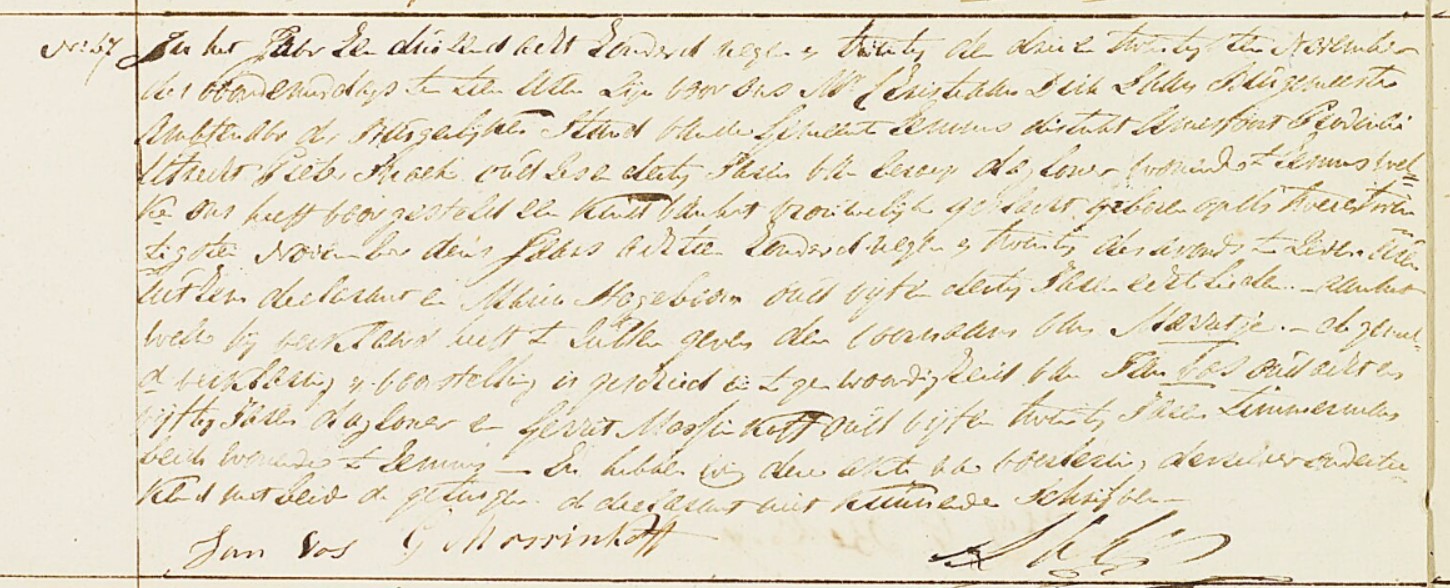 No: 67 In het Jaar Een duizend acht honderd negen en twintig den drie en twintigsten November
des voordemiddags ten tien uren zijn voor ons Mr Christiaan Dirk Burgemeester
Ambtenaar der Burgerlijken Stand van de Gemeente Eemnes district Amersfoort Provincie
Utrecht Pieter oud zes en dertig Jaren van beroep dagloner wonende te Eemnes wel=
ke ons heeft voorgesteld een kind van het vrouwelijk geslacht, geboren op den twee en twin
tigsten November dezes Jaars achttien honderd negen en twintig des avonds te zeven uren
uit hem declarant en Maria Hageboom oud vijf en dertig Jaren echtelieden. — aan het
welke hij verklaard heeft te zullen geven den voornaam van Marretje. — de gemel-
de verklaring en voorstelling is geschied in tegenwoordigheid van Jan Vos oud acht en
vijftig Jaren dagloner en Gerrit Morsinkhoff oud vijf en twintig Jaren Timmerman
beide wonende te Eemnes — En hebben wij deze akte na voorlezing derzelver ondertee
kend met beide de getuigen de declarant niet kunnende schrijven —
Jan Vos G Morsinkhoff